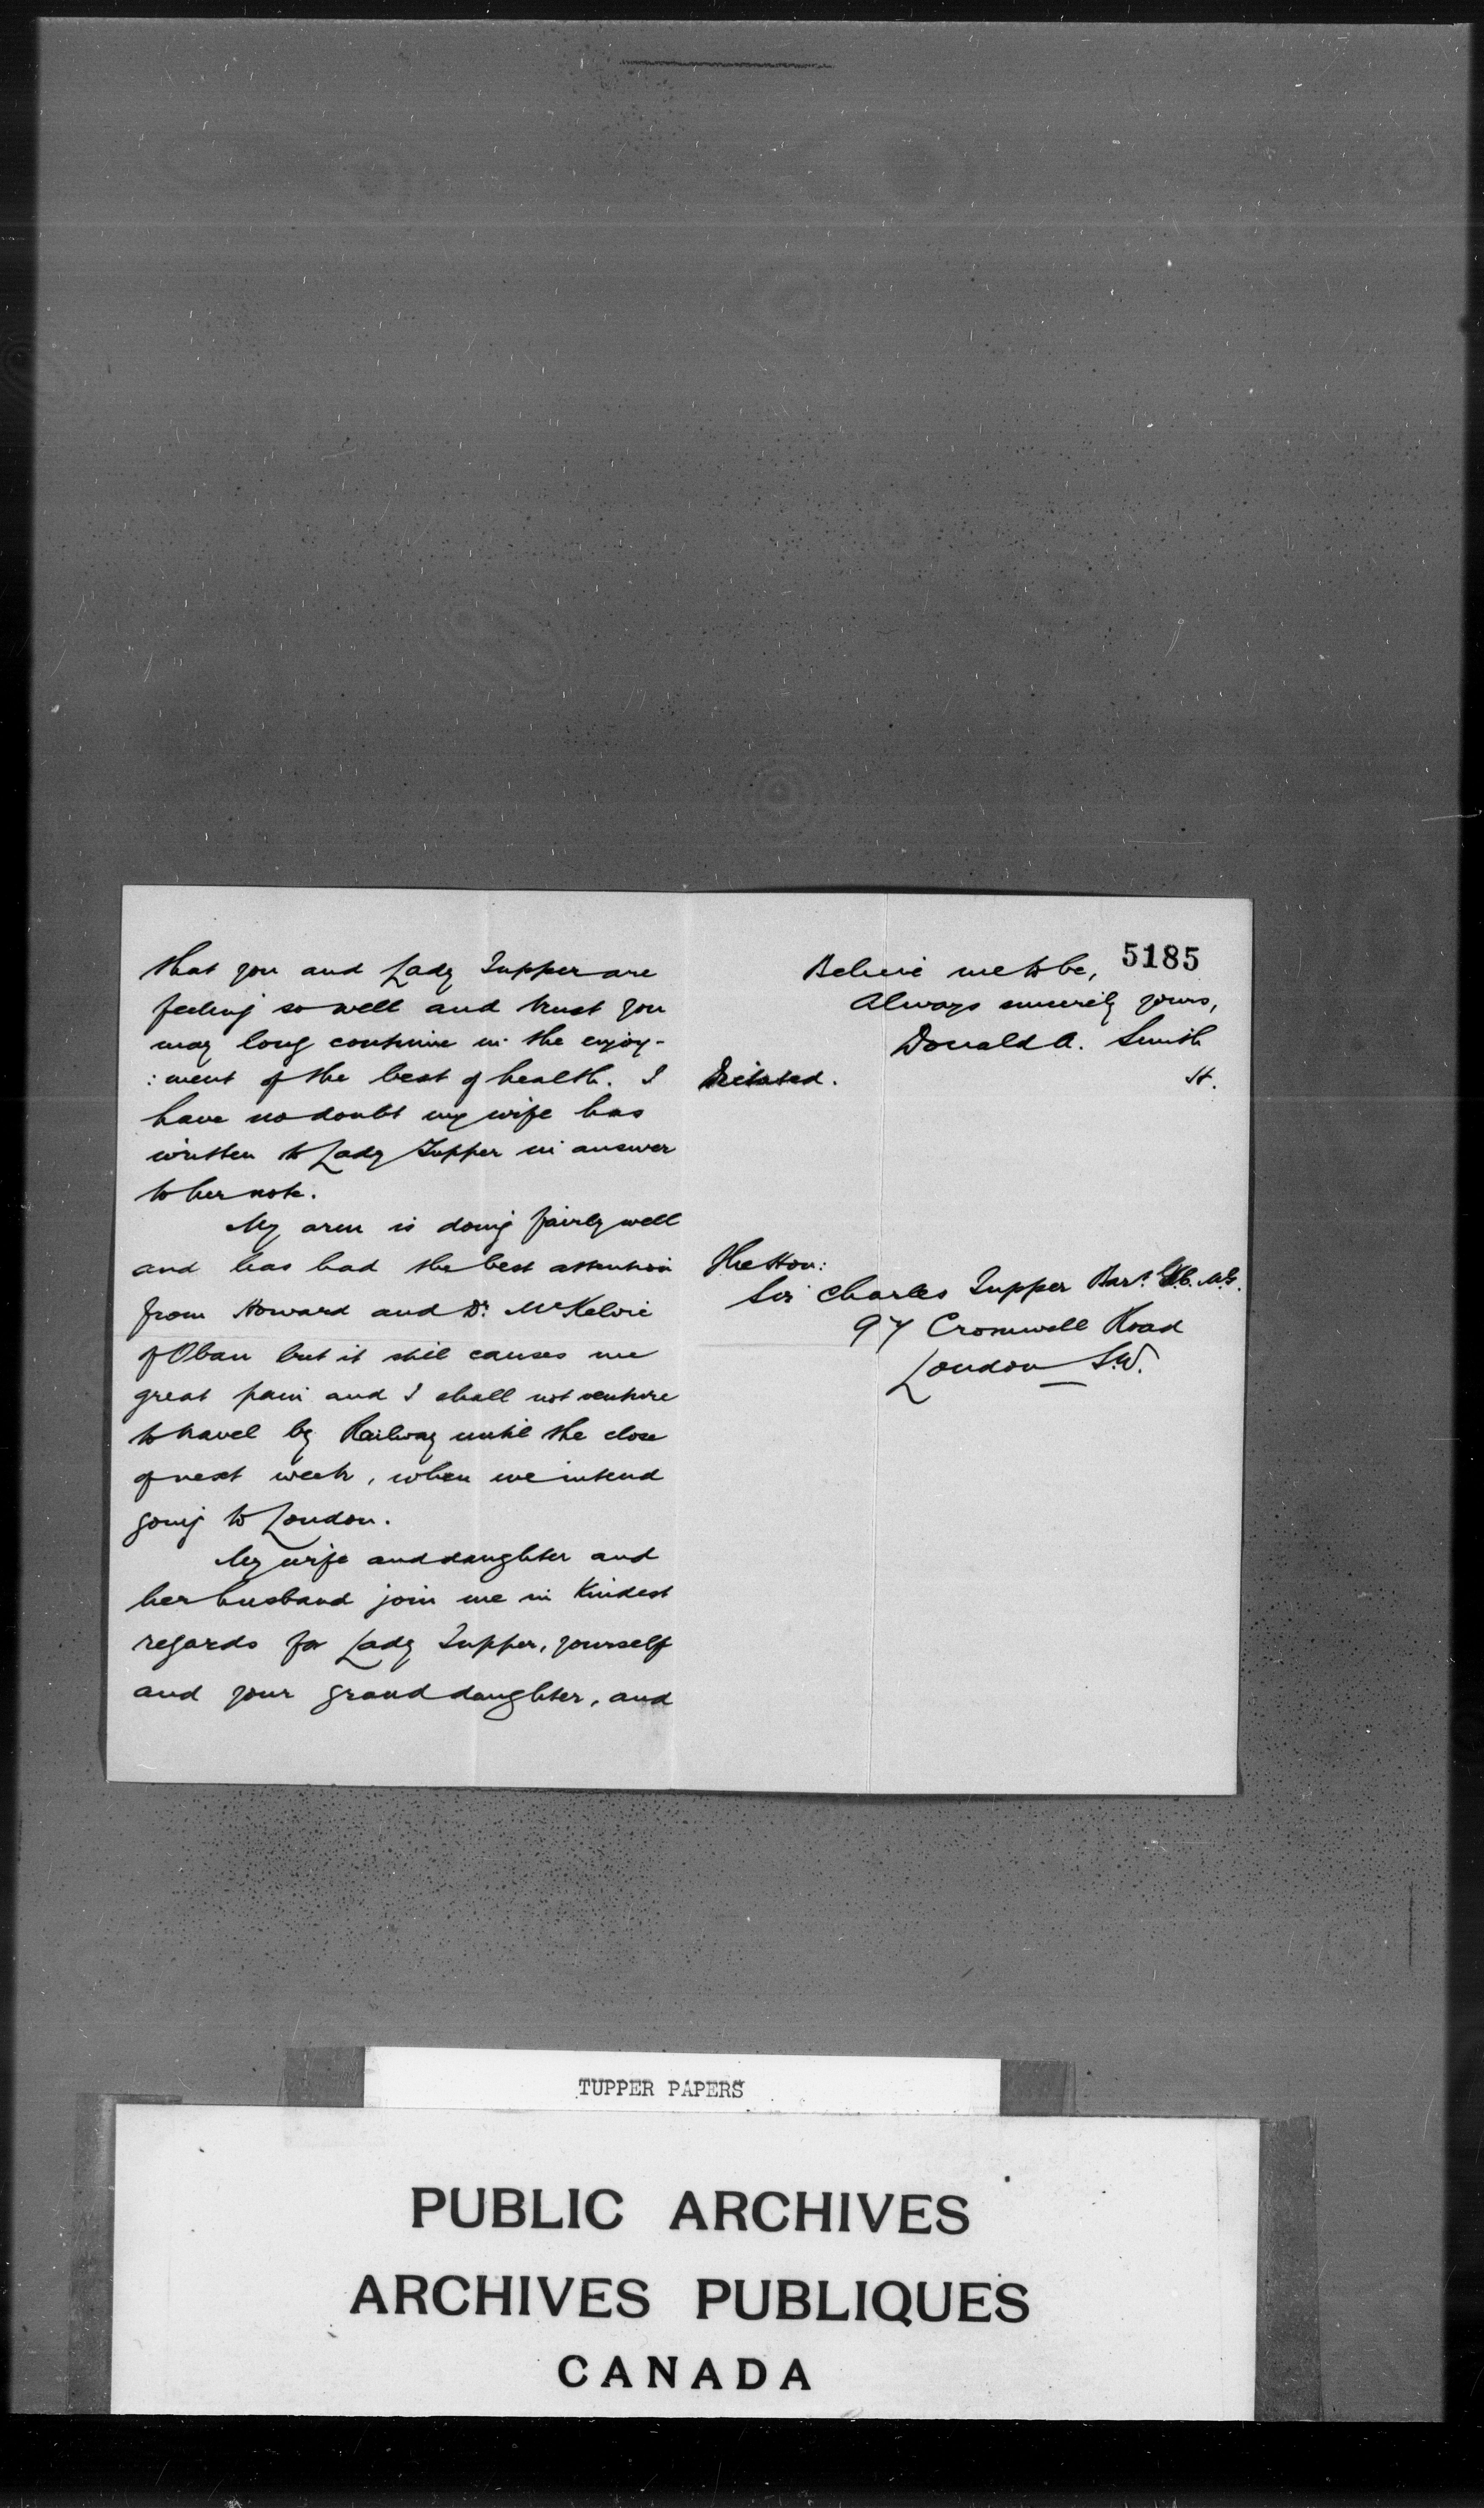 that you and Lady Tupper are
feeling so well and trust you
may long continue in the enjoy-
:ment of the best of health. I
have no doubt my wife has
written to Lady Tupper in answer
to her note.
My arm is doing fairly well
and has had the best attention
from Howard and Dr. McKelvie
of Oban but it still causes me
great pain and I shall not venture
to travel by Railway until the close
of next week, when we intend
going to London.
My wife and daughter and
her husband join me in kindest
regards for Lady Tupper, yourself
and your granddaughter, and
5185
Believe me to be,
Always sincerely yours,
Donald A. Smith
H.
Dictated.
The Hon:
Sir Charles Tupper Bart. G.C.M.G.
97 Cromwell Road
London S.W.
TUPPER PAPERS
PUBLIC ARCHIVES
ARCHIVES PUBLIQUES
CANADA